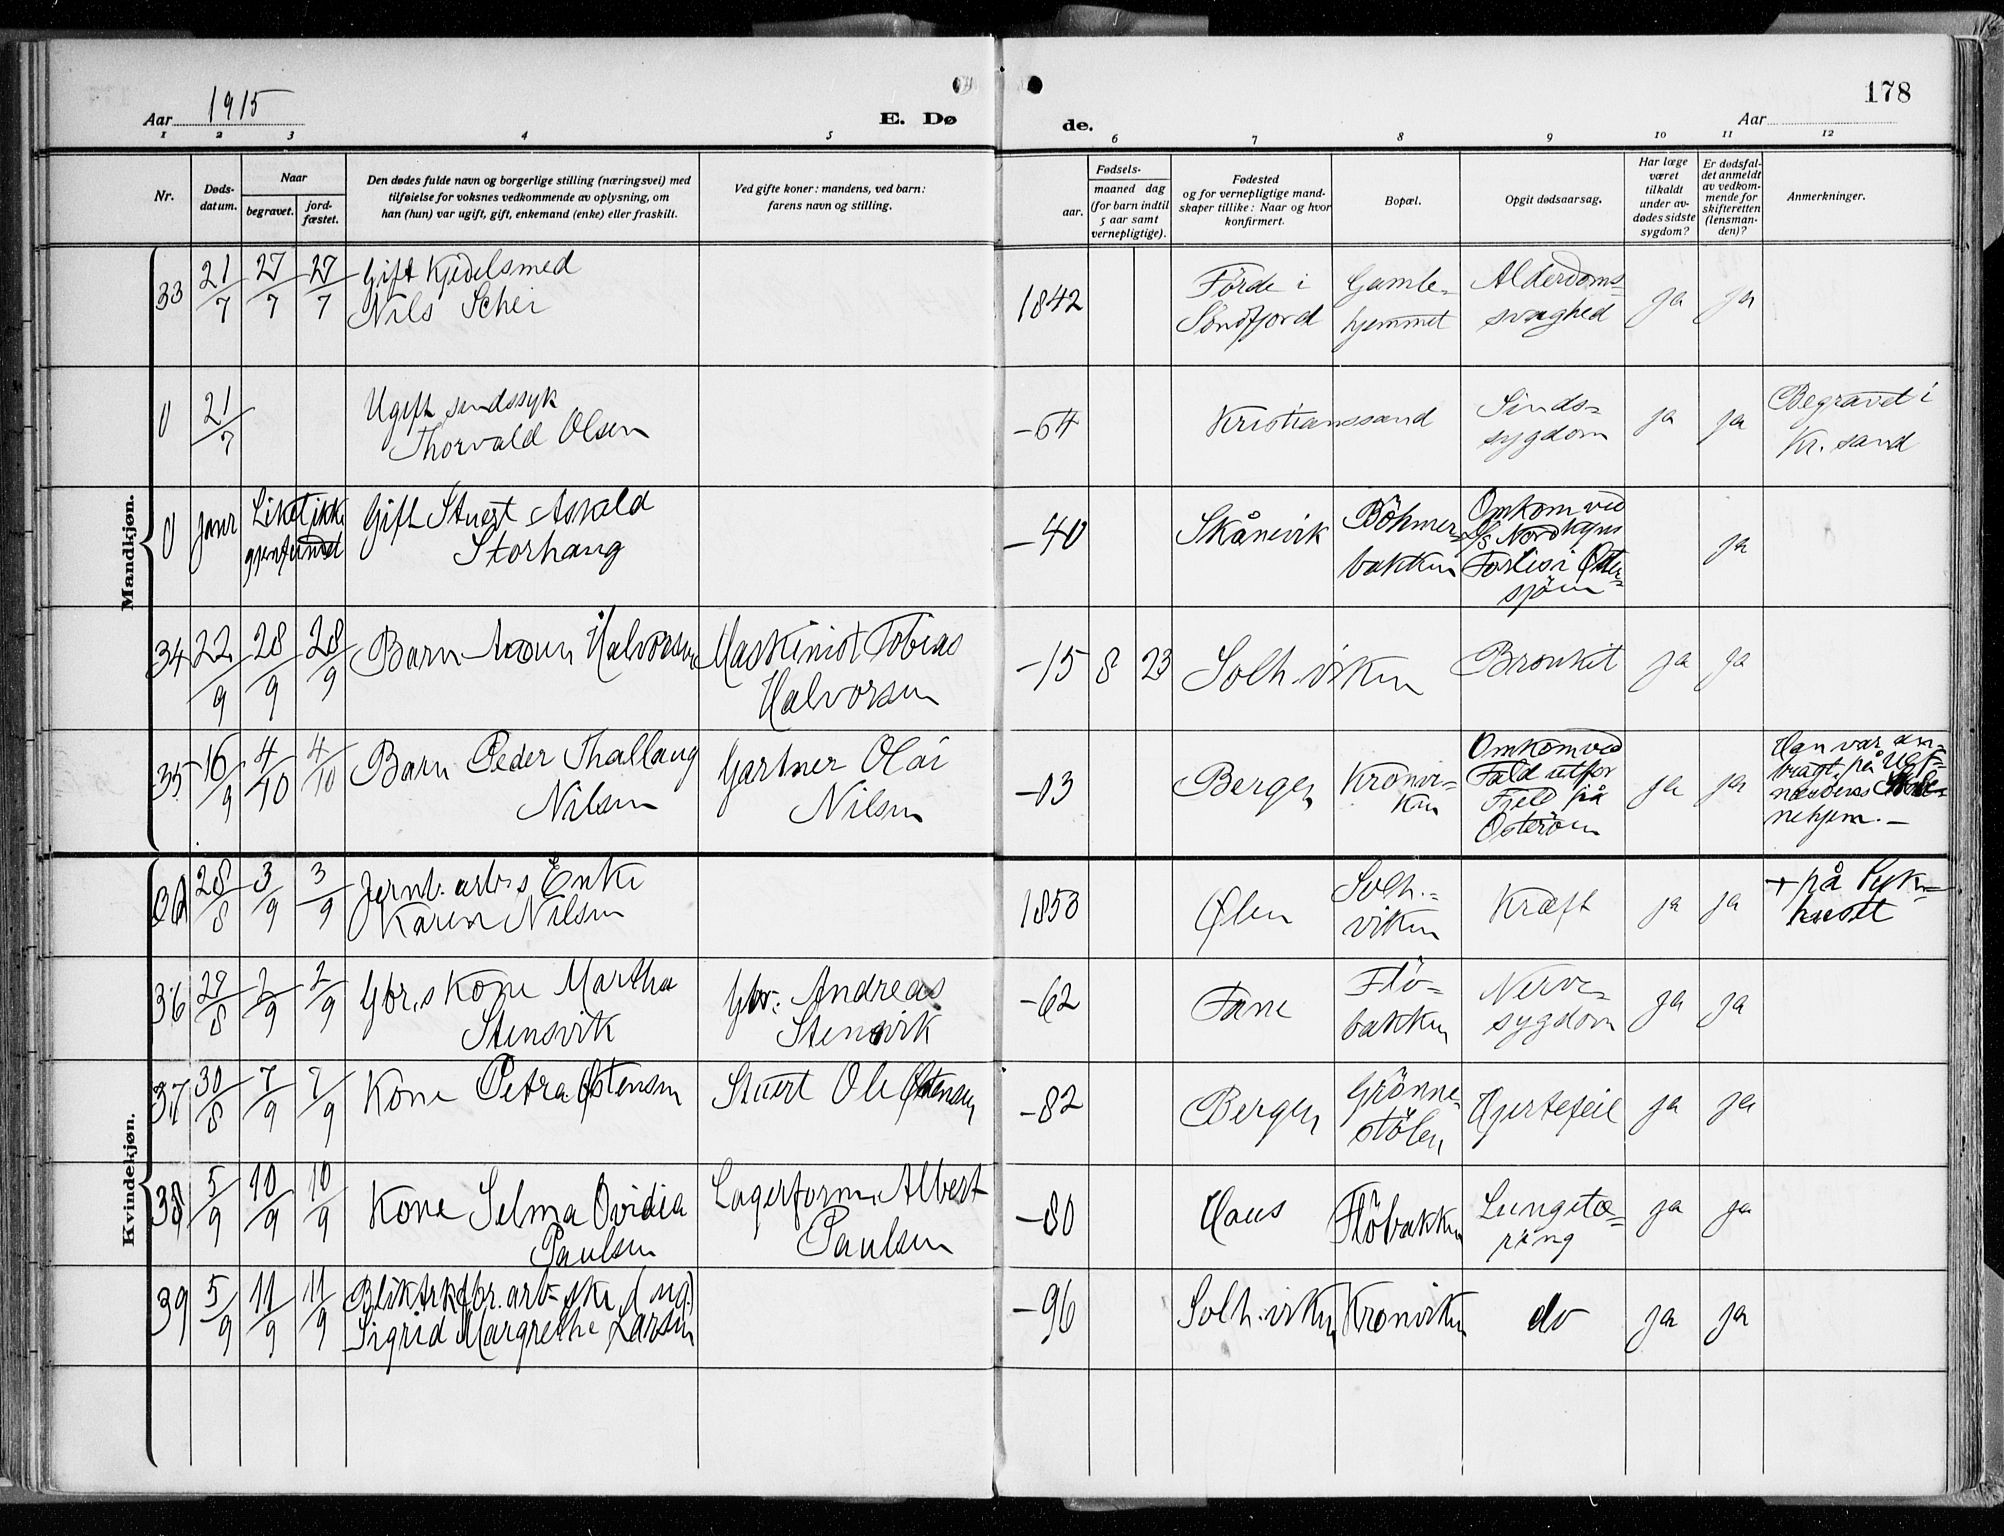 178
Aar 1915
E. Dø
de.
Aar
1 2 3 4 5 6 7 8 9 10 11 12
Nr.
Døds-
datum.
Naar
begravet.
jord-
fæstet.
Den dødes fulde navn og borgerlige stilling (næringsvei) med
tilføielse for voksnes vedkommende av oplysning, om
han (hun) var ugift, gift, enkemand (enke) eller fraskilt.
Ved gifte koner: mandens, ved barn:
farens navn og stilling.
Fødsels-
aar.
maaned dag
(for barn indtil
5 aar samt
vernepligtige).
Fødested
og for vernepligtige mand-
skaper tillike: Naar og hvor
konfirmert.
Bopæl.
Opgit dødsaarsag.
Har læge
været
tilkaldt
under av-
dødes sidste
sygdom?
Er dødsfal-
det anmeldt
av vedkom-
mende for
skifteretten
(lensman-
den)?
Anmerkninger.
Mandkjøn.
33 21/7 27/7 27/7
Gift Kjedelsmed
Nils Schei
1842
Förde i
Söndfjord
Gamle-
hjemmet
Alderdoms-
svaghed
ja ja
0 21/7
Ugift sindssyk
Thorvald Olsen
-64
Kristianssand
Sinds-
sygdom
ja ja
Begravet i
Kr. sand
0 Janr
Liket ikke
gjenfundet
Gift Stuert Askeld
Storhaug
-40
Skånevik
Böhmer-
bakken
Omkom ved
D/S Nordkyns
Forlis i Øster-
sjöen
ja
34 22/9 28/9 28/9
Barn Halvorsen
Maskinist Tobias
Halvorsen
-15 8 23
Solh.viken
Bronkit
ja ja
35 16/9 4/10 4/10
Barn Peder Thallaug
Nilsen
Gartner Olai
Nilsen
-03
Bergen
Kronvi-
ken
Omkom ved
Fald utfor
Fjeld på
Osteröen
ja ja
Han var an-
bragt på
nehjem. -
Kvindekjøn.
28/8 3/9 3/9
Jernb. arb.s Enke
Karen Nilsen
1853
Ølen
Solh.-
viken
Kræft
ja ja
+ på Syk-
huset
36 29/8 2/9 2/9
Gbr.s Kone Martha
Stensvik
Gbr. Andreas
Stensvik
-62
Fane
Flö-
bakken
Nerve-
sygdom
ja ja
37 30/8 7/9 7/9
Kone Petra Østensen
Stuert Ole Østensen
-82
Bergen
Grönne-
stölen
Hjertefeil
ja ja
38 5/9 10/9 10/9
Kone Selma Ovidia
Paulsen
Lagerform. Albert
Paulsen
-80
Haus
Flöbakken
Lungetæ-
ring
ja ja
39 5/9 11/9 11/9
arb-ske (ug.)
Sigrid Margrethe Larsen
-96
Solh.viken
Kronviken
do
ja ja